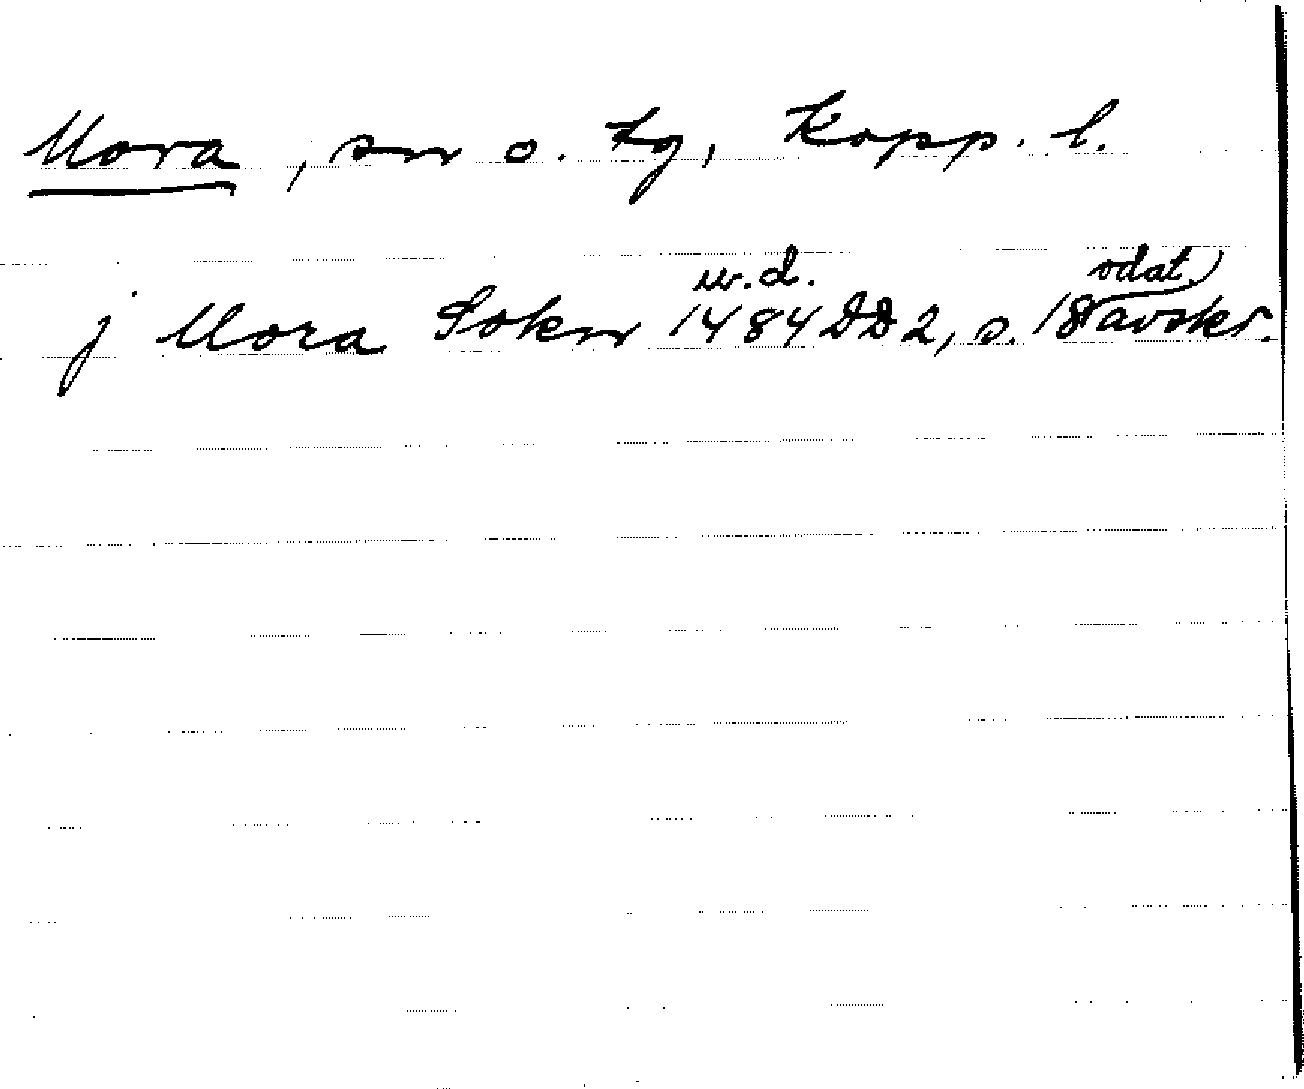 Mora, sn o. tg, Kopp. l.
j Mora Sokn 1484 u.d. DD 2, s. 18 odat avskr.